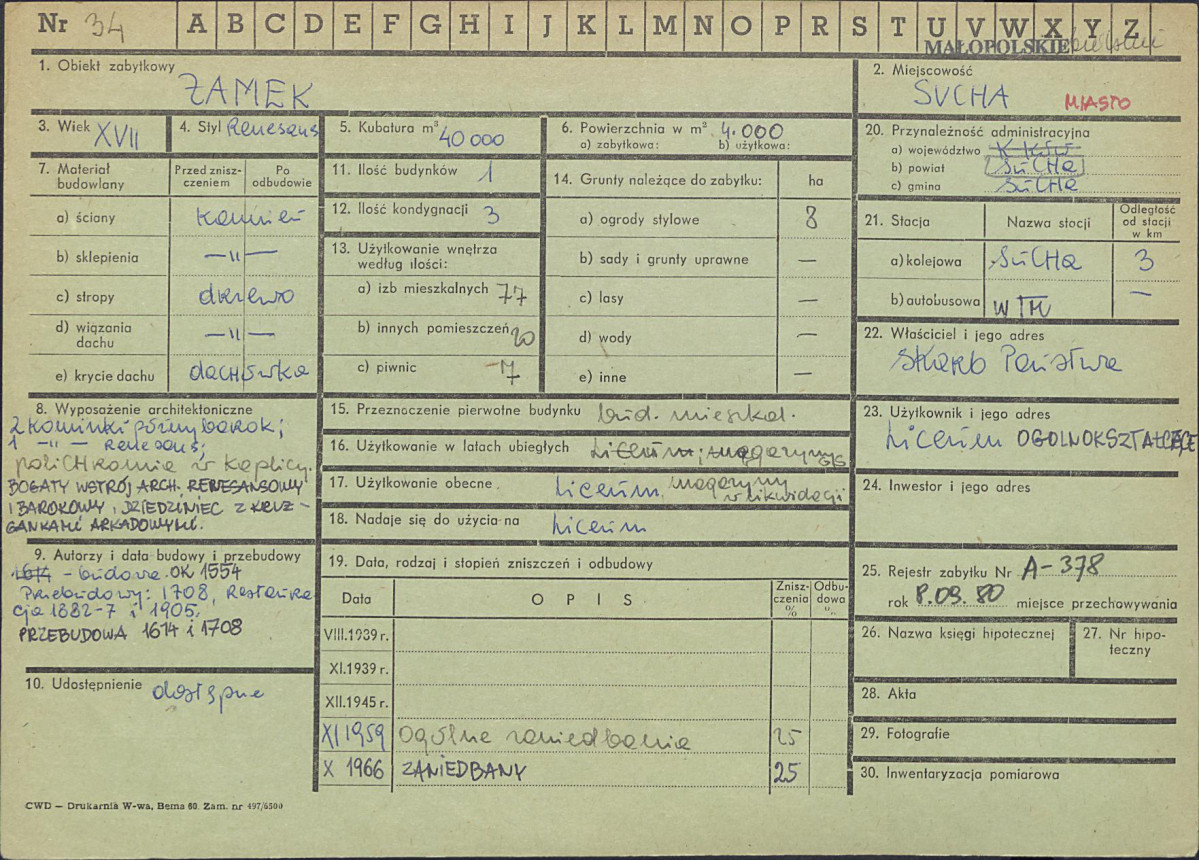 Nr 34 A B C D E F G H I J K L M N O P R S T U V W X Y Z
MAŁOPOLSKIE
1. Obiekt zabytkowy
ZAMEK
2. Miejscowość
SUCHA MIASTO
3. Wiek XVII
4. Styl Renesans
5. Kubatura m³ 40 000
6. Powierzchnia w m² 4.000
a) zabytkowa: b) użytkowa:
7. Materiał budowlany
Przed znisz-czeniem
Po odbudowie
a) ściany kamień
b) sklepienia —"—
c) stropy drzewo
d) wiązania dachu —"—
e) krycie dachu dachówka
8. Wyposażenie architektoniczne
2 kominki późny barok;
1 —"— Renesans;
poliCHRomia w kaplicy.
BOGATY WSTRÓJ ARCH. RENESANSOWY
I BAROKOWY, DZIEDZINIEC Z KRUŻ-
GANKAMI ARKADOWYMI.
9. Autorzy i data budowy i przebudowy
1614 – budowa OK 1554
Przebudowy: 1708, Restaura
cja 1882-7 i 1905,
PRZEBUDOWA 1614 i 1708
10. Udostępnienie dostępne
11. Ilość budynków 1
12. Ilość kondygnacji 3
13. Użytkowanie wnętrza według ilości:
a) izb mieszkalnych 77
b) innych pomieszczeń 20
c) piwnic 7
14. Grunty należące do zabytku: ha
a) ogrody stylowe 8
b) sady i grunty uprawne —
c) lasy —
d) wody —
e) inne —
15. Przeznaczenie pierwotne budynku bud. mieszkal.
16. Użytkowanie w latach ubiegłych Liceum; magazyny GS
17. Użytkowanie obecne Liceum, magazyny
w likwidacji
18. Nadaje się do użycia na Liceum
19. Data, rodzaj i stopień zniszczeń i odbudowy
Data OPIS Znisz-czenia % Odbu-dowa %
VIII.1939 r.
XI.1939 r.
XII.1945 r.
XI 1959 Ogólne zaniedbania 25
X 1966 ZANIEDBANY 25
20. Przynależność administracyjna
a) województwo
b) powiat SUCHA
c) gmina SUCHA
21. Stacja
Nazwa stacji
Odległość od stacji w km
a) kolejowa SUCHA 3
b) autobusowa W TM —
22. Właściciel i jego adres
Skarb Państwa
23. Użytkownik i jego adres
Liceum OGÓLNOKSZTAŁCĄCE
24. Inwestor i jego adres
25. Rejestr zabytku Nr A-378
rok 8.09.80 miejsce przechowywania
26. Nazwa księgi hipotecznej
27. Nr hipo-teczny
28. Akta
29. Fotografie
30. Inwentaryzacja pomiarowa
CWD — Drukarnia W-wa, Bema 60. Zam. nr 497/6500